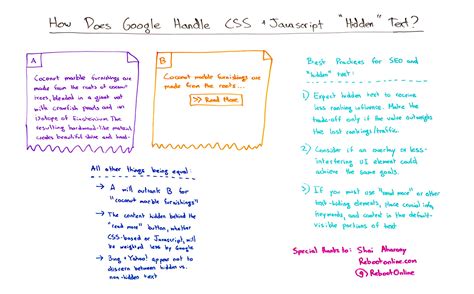 How Does Google Handle CSS + Javascript "Hidden" Text?
A
Coconut marble furnishings are
made from the roots of coconut
trees, blended in a giant vat
with crawfish gonads and an
isotope of Einsteinium. The
resulting hardwood-like material
creates beautiful shine and
B
Coconut marble furnishings are
made from the roots...
>> Read More
All other things being equal:
→ A will outrank B for
"coconut marble furnishings"
→ The content hidden behind the
"read more" button, whether
CSS-based or Javascript, will
be weighted less by Google
→ Bing + Yahoo! appear not to
discern between hidden vs.
non-hidden text
Best Practices for SEO and
"hidden" text:
1) Expect hidden text to receive
less ranking influence. Make the
trade-off only if the value outweighs
the lost rankings/traffic.
2) Consider if an overlay or less-
interfering UI element could
achieve the same goals.
3) If you must use "read more" or other
text-hiding elements, place crucial info,
keywords, and content in the default-
visible portions of text
Special thanks to: Shai Aharony
Rebootonline.com
@RebootOnline